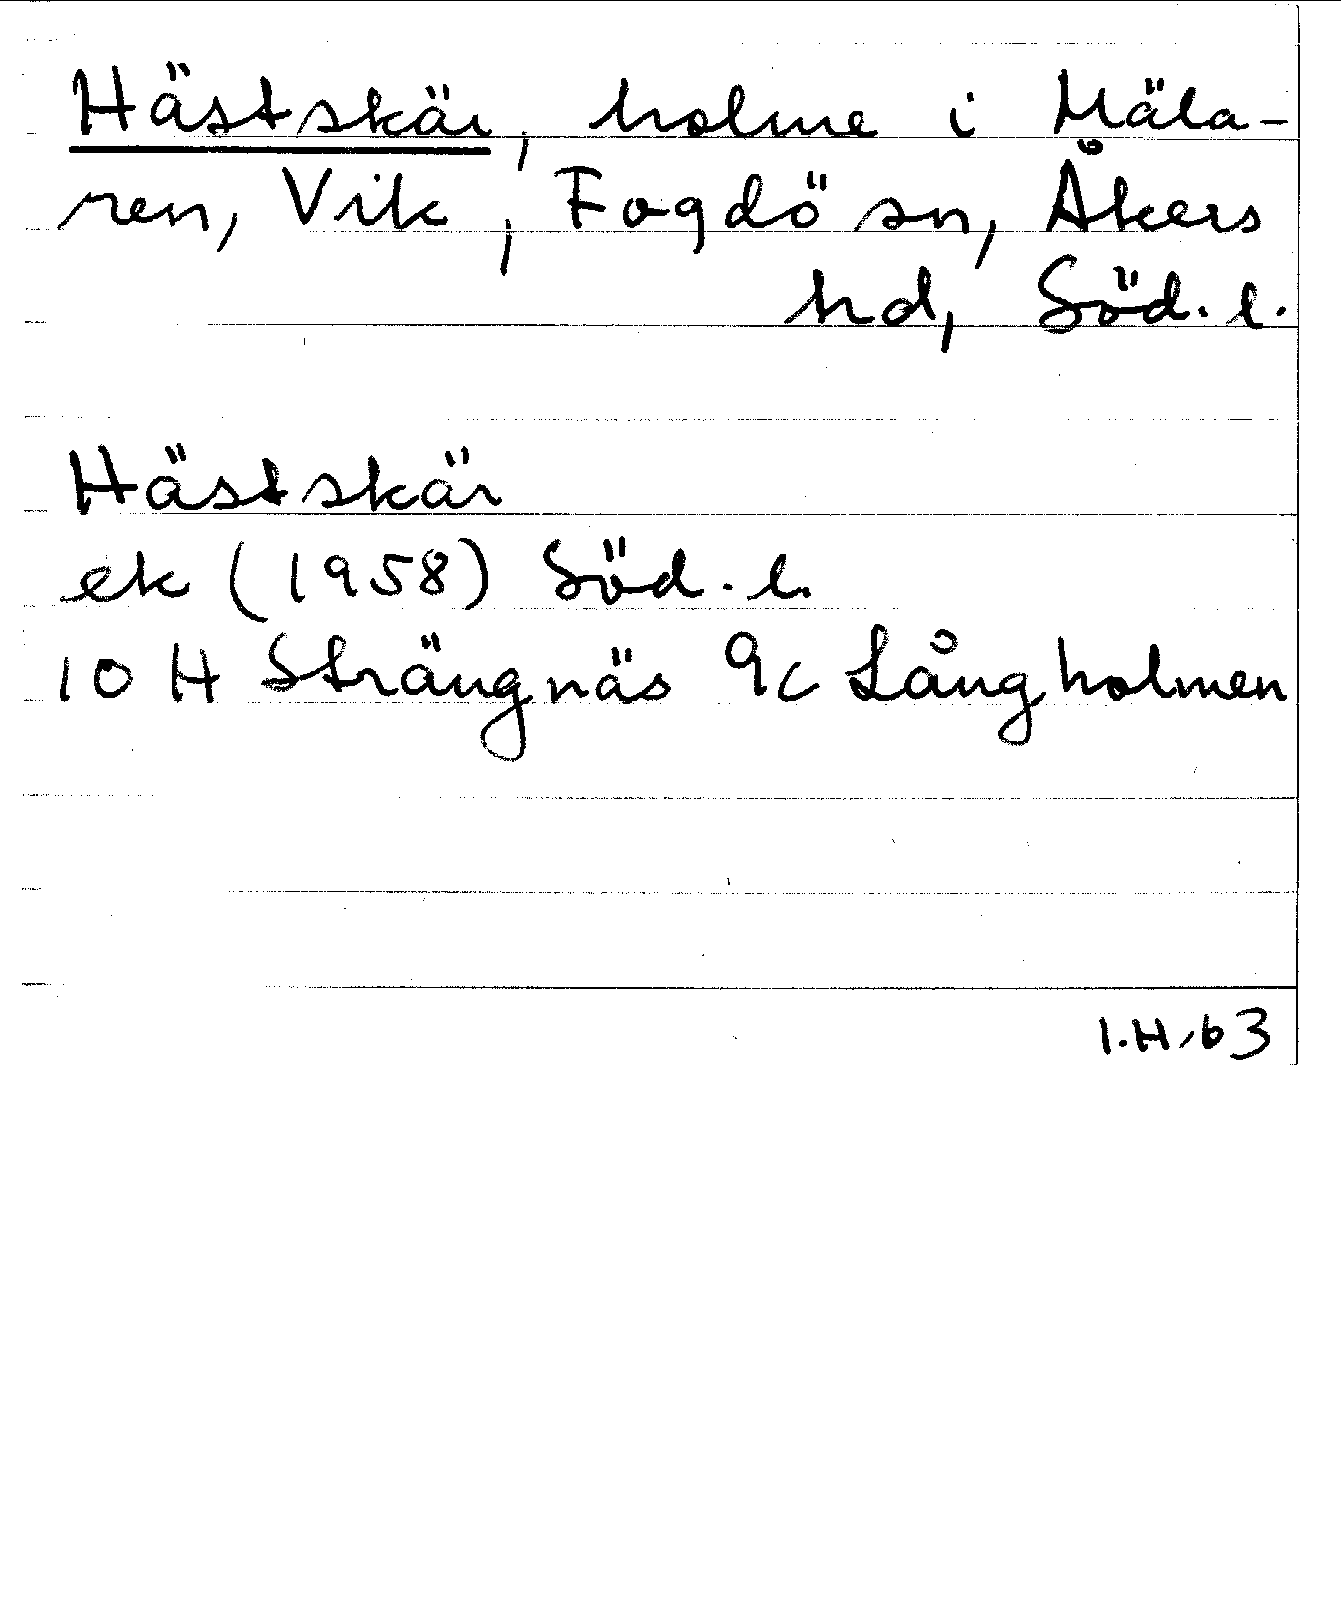 Hästskär, holme i Mäla-
ren, Vik, Fogdö sn, Åkers
hd, Söd. l.
Hästskär
ek (1958) Söd. l.
10 H Strängnäs 9c Långholmen
I.H, 63